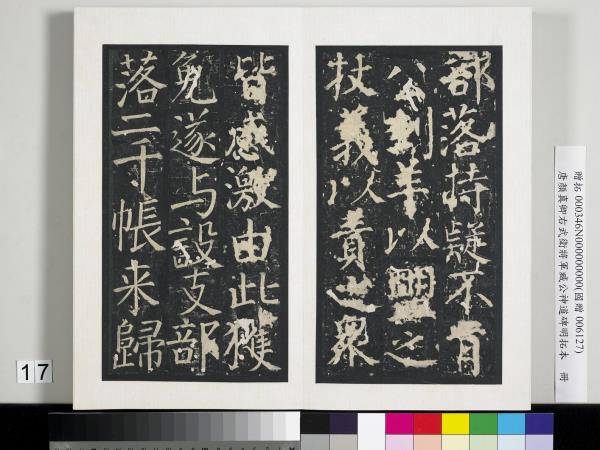 部落持疑不肯
公刲羊以盟之
杖義以責之衆
皆感激由此獲
免遂与設支部
落二千帳来歸
贈拓 000346N000000000(國贈 006127)
唐顏真卿右武衛將軍臧公神道碑明拓本 冊
17